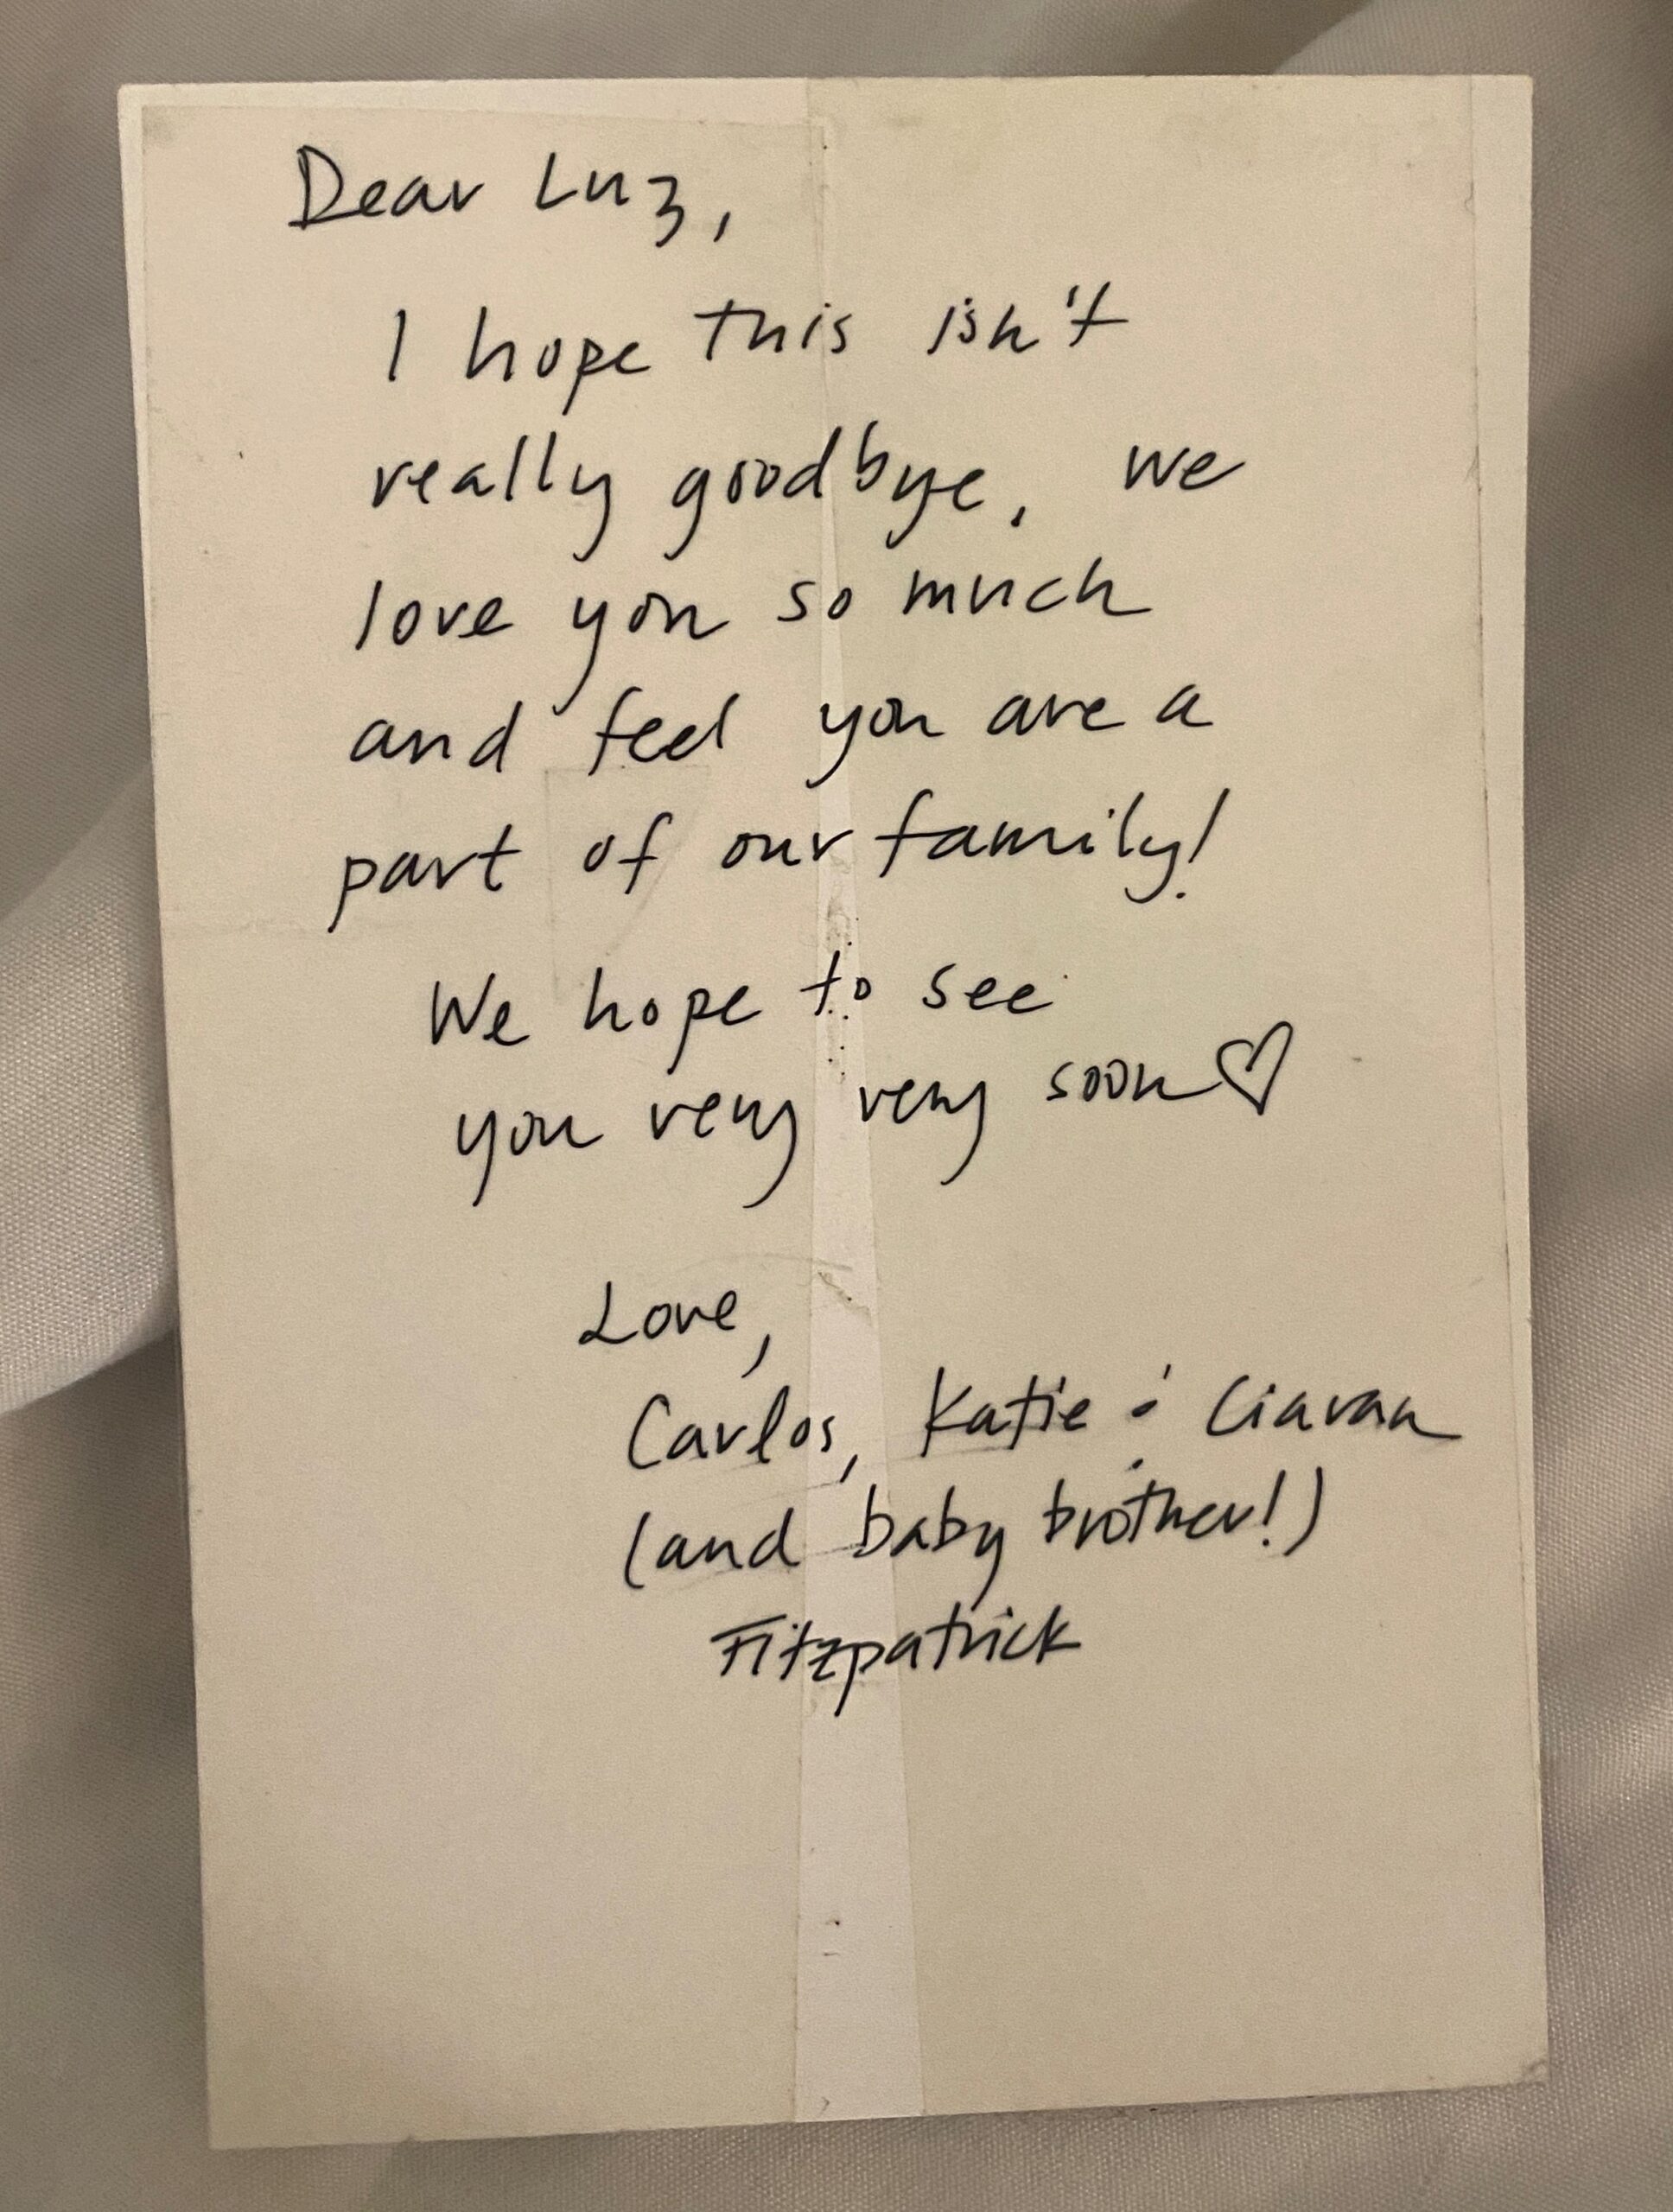 Dear Luz,
I hope this isn't
really goodbye, we
love you so much
and feel you are a
part of our family!
We hope to see
you very very soon ♡
Love,
Carlos, Katie & Ciaran
(and baby brother!)
Fitzpatrick